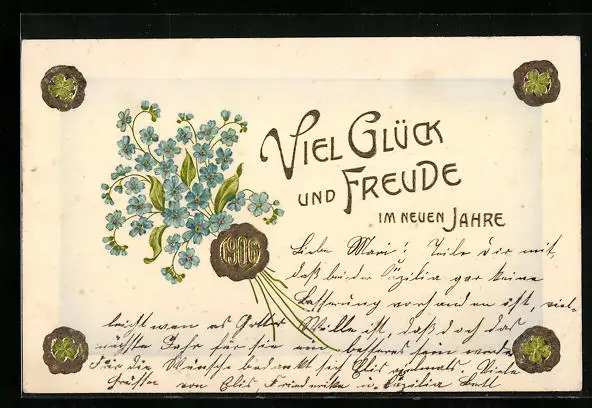 VIEL GLÜCK
UND FREUDE
IM NEUEN JAHRE
1906
Liebe Marie! Teile dir mit,
daß bei der Cäzilia gar keine
Besserung vorhanden ist, viel-
leicht wen es Gottes Wille ist, daß doch das
nächste Jahr für sie ein besseres sein werde
Für die Wünsche bedankt sich Elis vielmals. Viele
Grüße von Elis, Friederike u. Cäzilia